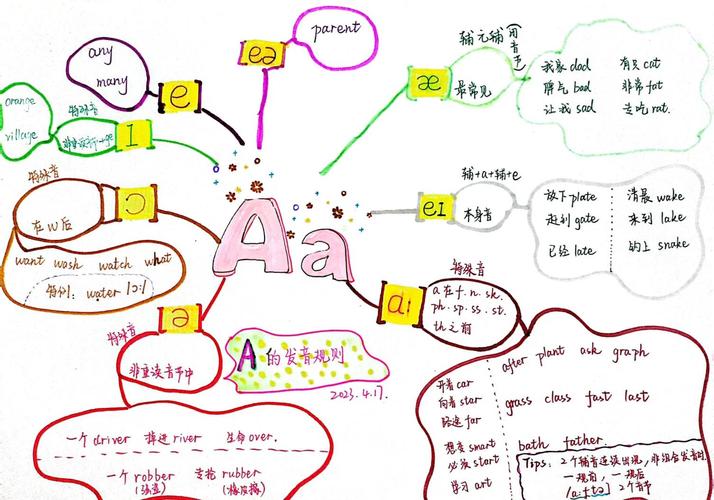 any
many
e
eə
parent
辅元辅
用音飞
æ
最常见
我家 dad
有只 cat
脾气 bad
非常 fat
让我 sad
去吃 rat.
orange
village
特殊音
I
特殊音
在w后
ɔ
want wash watch what
特例: water /ɔ:/
Aa
eI
辅+a+辅+e
本身音
放下 plate
清晨 wake
赶到 gate
来到 lake
已经 late
钓上 snake
特殊音
ə
非重读音节中
A的发音规则
2023.4.17.
一个 driver 掉进 river 生命 over.
一个 robber
去抢 rubber
(强盗)
(橡皮擦)
a:
特殊音
a在f. n. sk.
ph. sp. ss. st.
th之前
after plant ask graph
开着 car
向着 star
路途 far
grass class fast last
想变 smart
必须 start
学习 art
bath father.
Tips: 2个辅音连读出现,非组合发音时
一规前, 一规后
2个音节